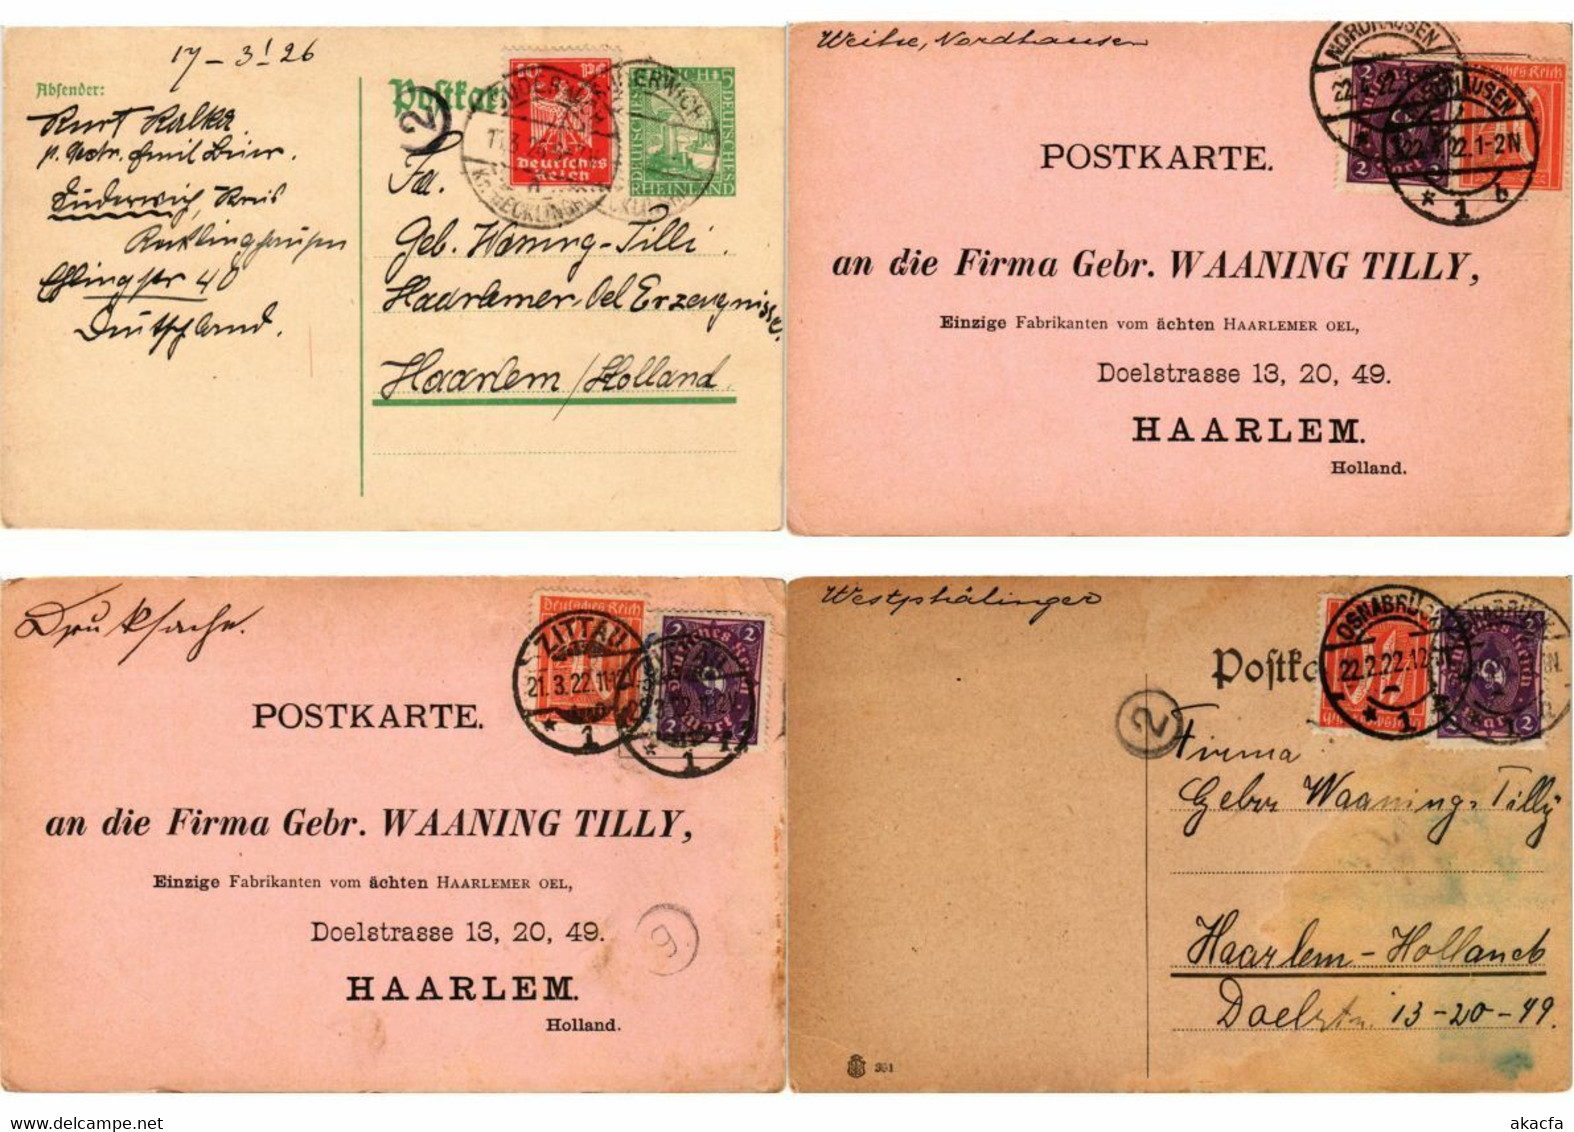 17-3.26
Absender:
Kurt Kalka
Süderwich, Kreis
Recklinghausen
40
Deutschland.
Postkar
10 Pf
Deutsches
Reich
5
DEUTSCHES
RHEINLAND
2
Fa.
Geb. Waning-Tilli.
Haarlemer-Oel Erzeugnisse.
Haarlem / Holland.
Weihe, Nordhausen
NORDHAUSEN
22.1-2N
* 1 b
2
Deutsches Reich
POSTKARTE.
an die Firma Gebr. WAANING TILLY,
Einzige Fabrikanten vom ächten HAARLEMER OEL,
Doelstrasse 13, 20, 49.
HAARLEM.
Holland.
Drucksache.
Deutsches Reich
ZITTAU
21.3.22.11-12V
* 1
2
POSTKARTE.
an die Firma Gebr. WAANING TILLY,
Einzige Fabrikanten vom ächten HAARLEMER OEL,
Doelstrasse 13, 20, 49.
9
HAARLEM.
Holland.
Westphälinger
OSNABRÜCK
22.2.22.12
* 1
2
Postkar
2
Firma
Gebr Waaning-Tilly
Haarlem-Holland
Doelstr. 13-20-49.
361
delcampe.net
akacfa